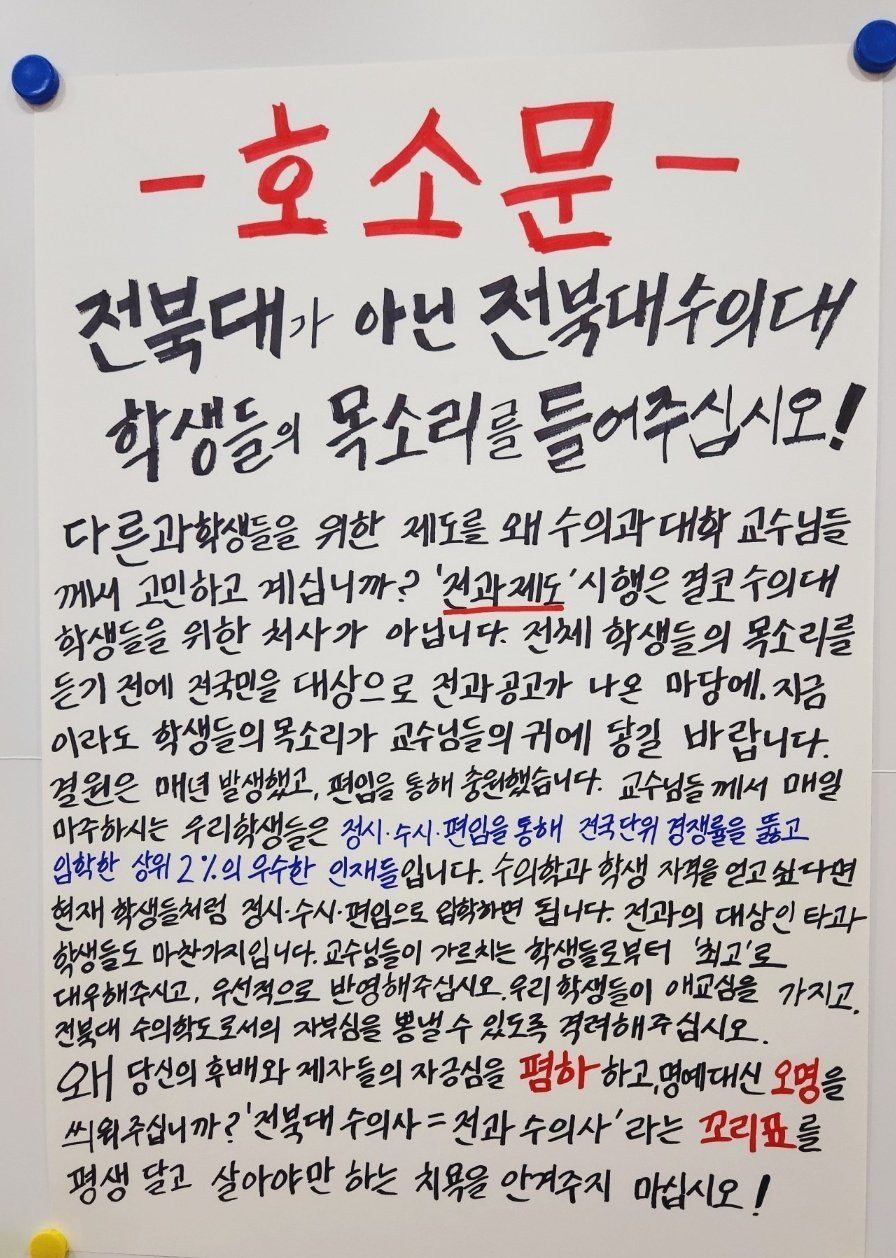 -호소문-
전북대가 아닌 전북대수의대
학생들의 목소리를 들어주십시오!
다른과학생들을 위한 제도를 왜 수의과 대학 교수님들
께서 고민하고 계십니까? '전과제도' 시행은 결코 수의대
학생들을 위한 처사가 아닙니다. 전체 학생들의 목소리를
듣기 전에 전국민을 대상으로 전과공고가 나온 마당에. 지금
이라도 학생들의 목소리가 교수님들의 귀에 닿길 바랍니다.
결원은 매년 발생했고, 편입을 통해 충원했습니다. 교수님들 께서 매일
마주하시는 우리학생들은 정시·수시·편입을 통해 전국단위 경쟁률을 뚫고
입학한 상위 2%의 우수한 인재들입니다. 수의학과 학생 자격을 얻고 싶다면
현재 학생들처럼 정시·수시·편입으로 입학하면 됩니다. 전과의 대상인 타과
학생들도 마찬가지입니다. 교수님들이 가르치는 학생들로부터 '최고'로
대우해주시고, 우선적으로 반영해주십시오. 우리 학생들이 애교심을 가지고,
전북대 수의학도로서의 자부심을 뽐낼 수 있도록 격려해주십시오.
왜 당신의 후배와 제자들의 자긍심을 폄하하고, 명예대신 오명을
씌워주십니까? '전북대 수의사 = 전과 수의사' 라는 꼬리표를
평생 달고 살아야만 하는 치욕을 안겨주지 마십시오!